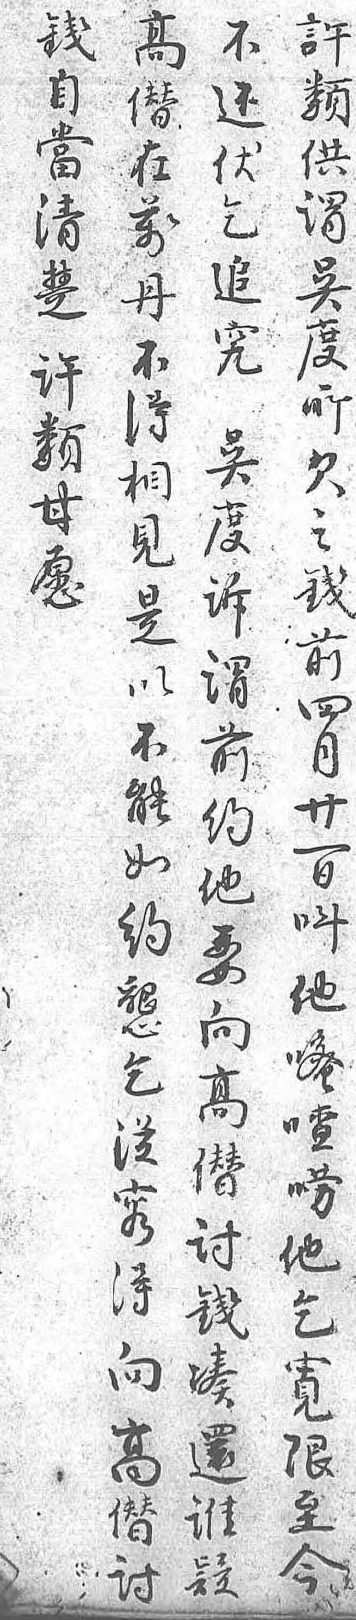 許類供謂吳度所欠之錢前四月廿一日叫他嘧喳嘮他乞寬限至今
不还伏乞追究　吳度訴謂前約他要向高僣討錢湊還誰疑
高僣在萬丹不得相見是以不能如約懇乞從容得向高僣討
錢自當清楚　許類甘愿